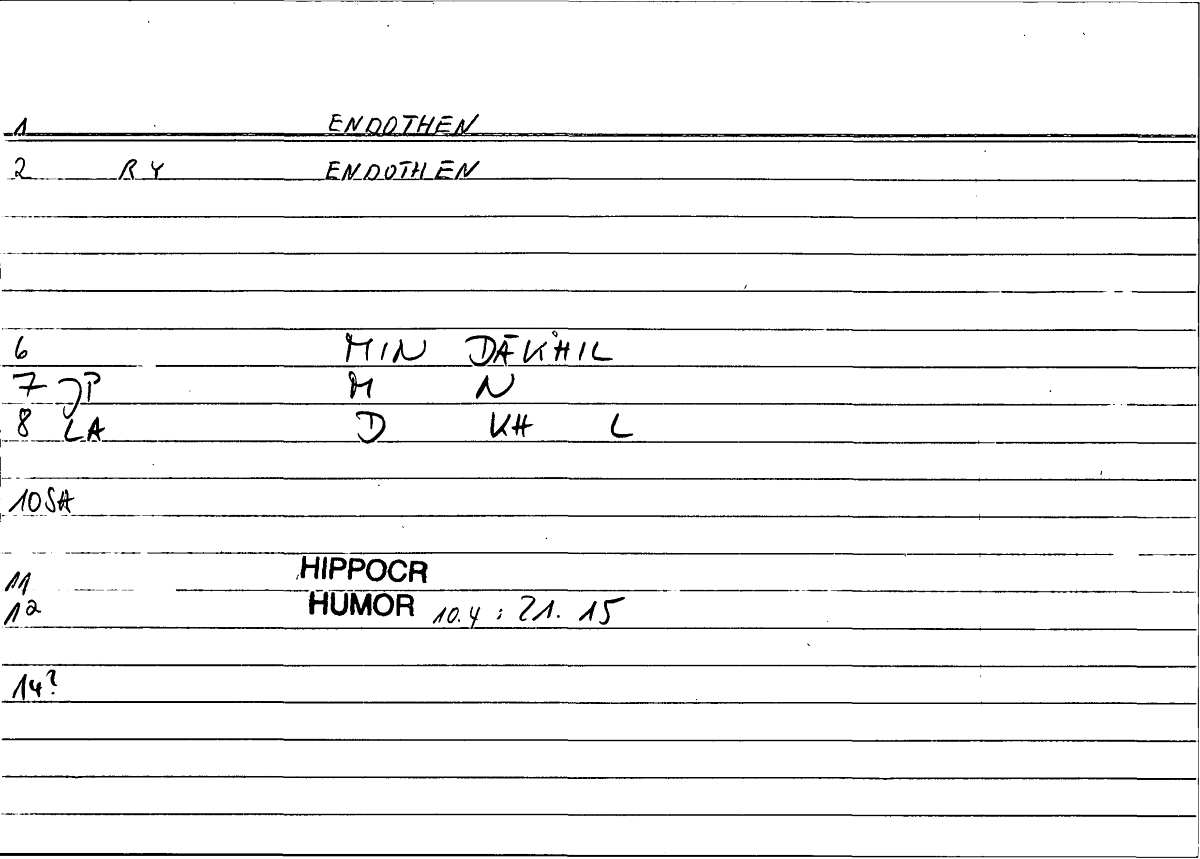 1 ENDOTHEN
2 RY ENDOTHEN
6 MIN DĀKHIL
7 JP M N
8 LA D KH L
10 SH
11 HIPPOCR
12 HUMOR 10.4 : 21. 15
14?